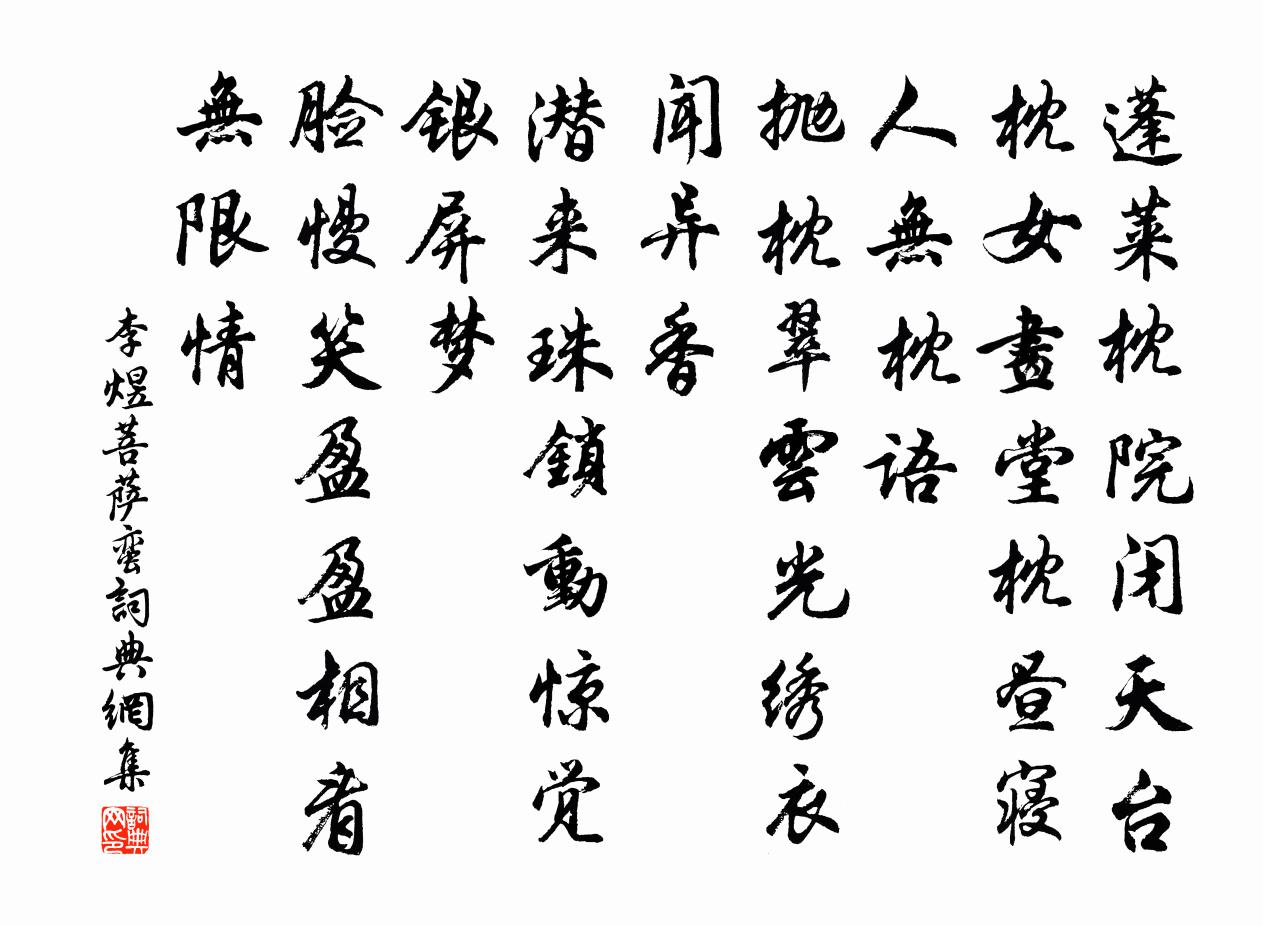 蓬莱枕院闭天台
枕女畫堂枕昼寝
人無枕语
抛枕翠雲光绣衣
闻异香
潜来珠鎖動惊觉
銀屏梦
脸慢笑盈盈相看
無限情
李煜菩萨蛮詞典網集
詞典网印